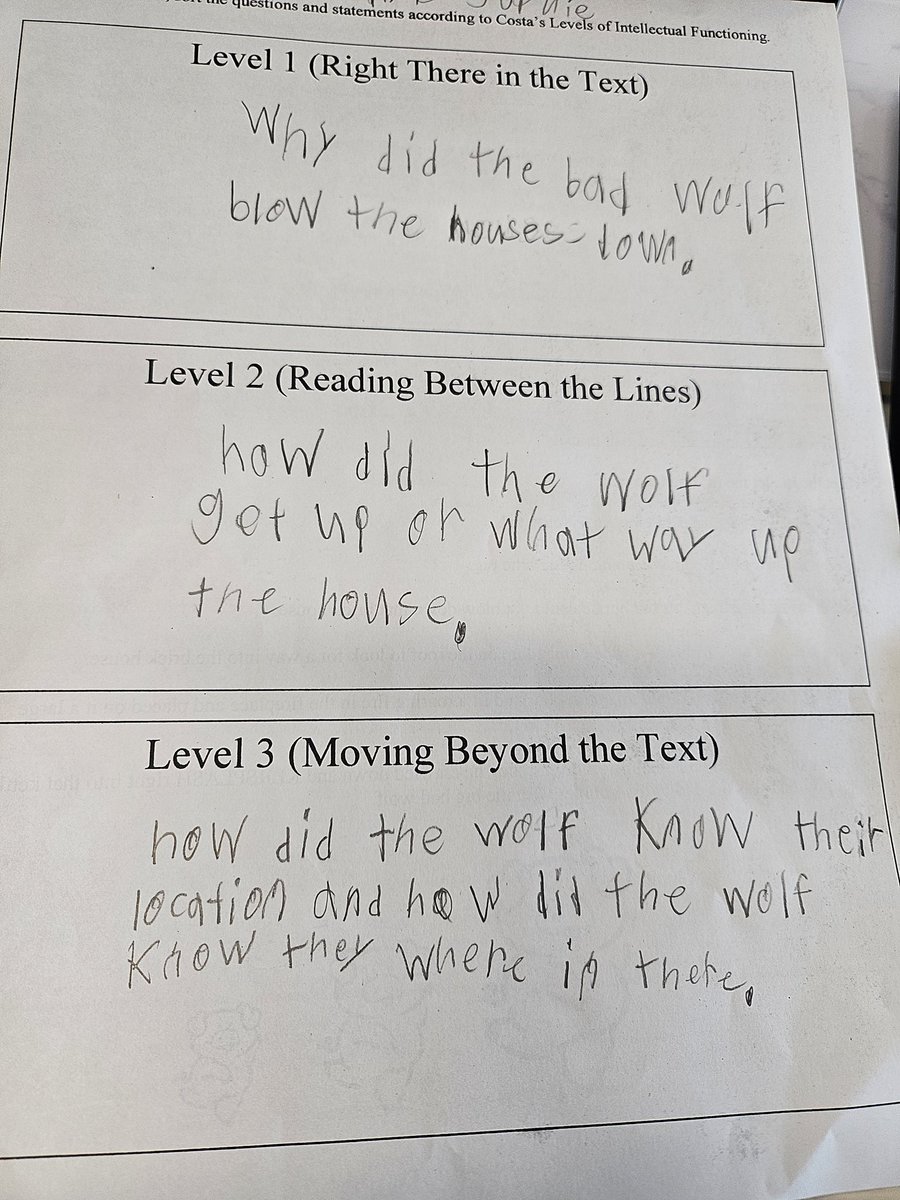 the questions and statements according to Costa's Levels of Intellectual Functioning.
Level 1 (Right There in the Text)
Why did the bad wolf
blow the houses down.
Level 2 (Reading Between the Lines)
how did the wolf
get up or what way up
the house.
Level 3 (Moving Beyond the Text)
how did the wolf Know their
location and how did the wolf
Know they where in there.